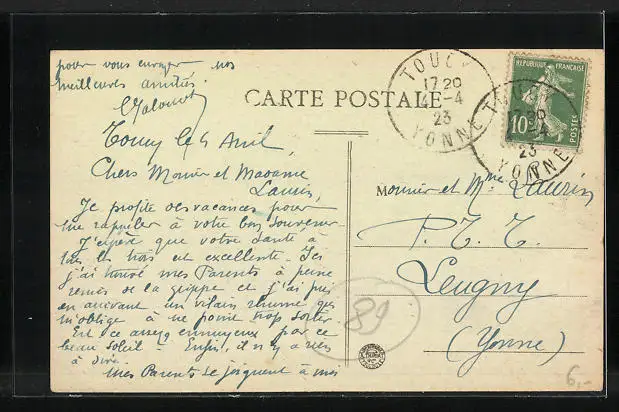 pour vous envoyer nos
meilleures amitiés.
CARTE POSTALE
TOUCY
17 20
4 -4
23
YONNE
REPUBLIQUE FRANÇAISE
10
POSTES
TOUCY
23
YONNE
Toucy le 4 Avril
Chers Monsieur et Madame
Laurin,
Je profite des vacances pour
me rappeler à votre bon souvenir
J'espère que votre santé à
tous les trois est excellente. Ici
j'ai trouvé mes Parents à peine
remis de la grippe et j'ai pris
en arrivant un vilain rhume qui
m'oblige à ne point trop sortir
Est ce assez ennuyeux par ce
beau soleil - Enfin, il n'y a rien
à dire
Mes Parents se joignent à moi
Monsieur et Mme Laurin
P. T. T.
Leugny
(Yonne)
89
6,-